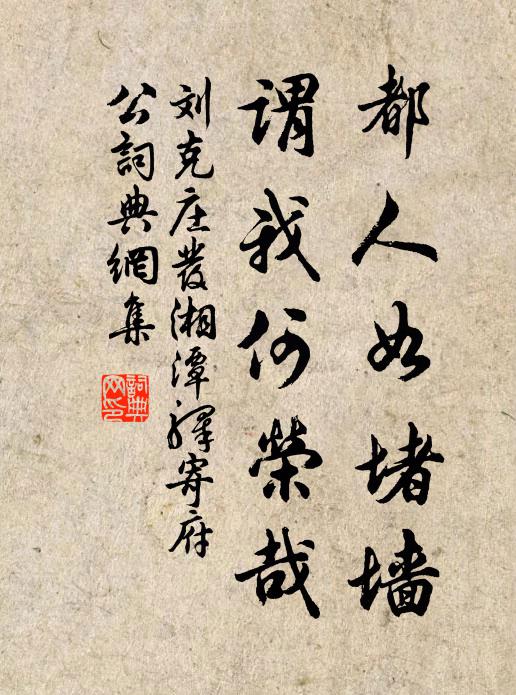 都人如堵墙
謂我何榮哉
刘克庄發湘潭驛寄府
公詞典網集
詞典网印